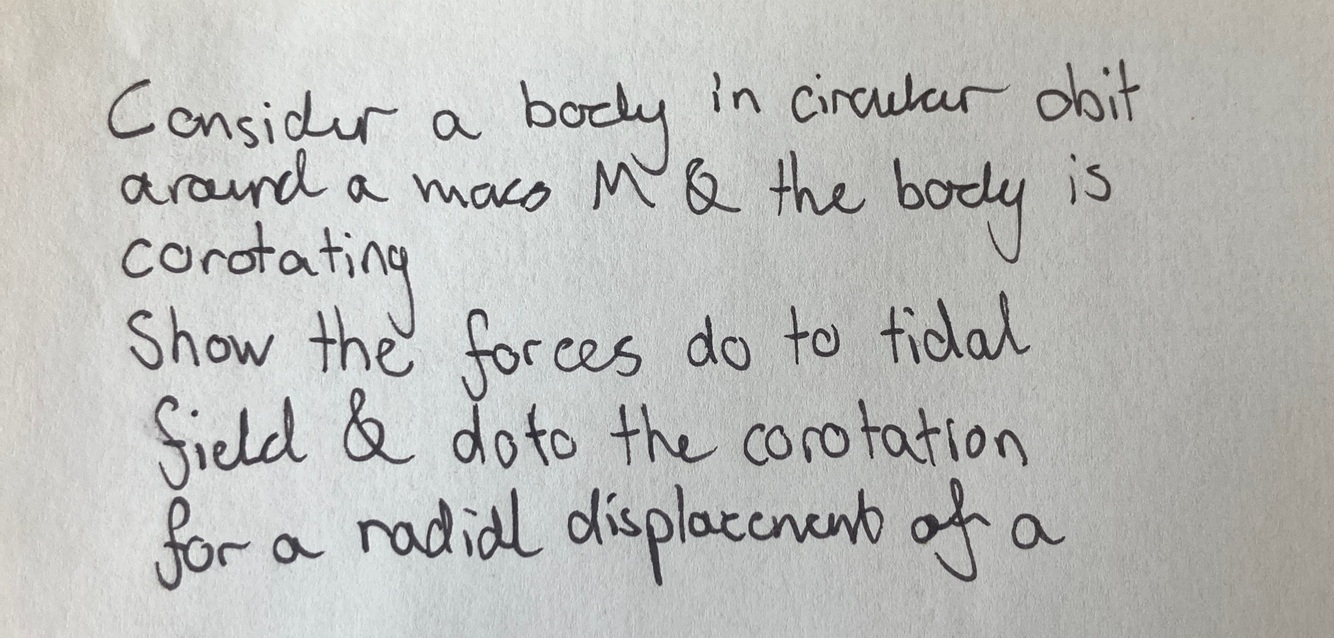 Consider a body in circular obit
around a mass M & the body is
corotating
Show the forces do to tidal
field & do to the corotation
for a radial displacement of a